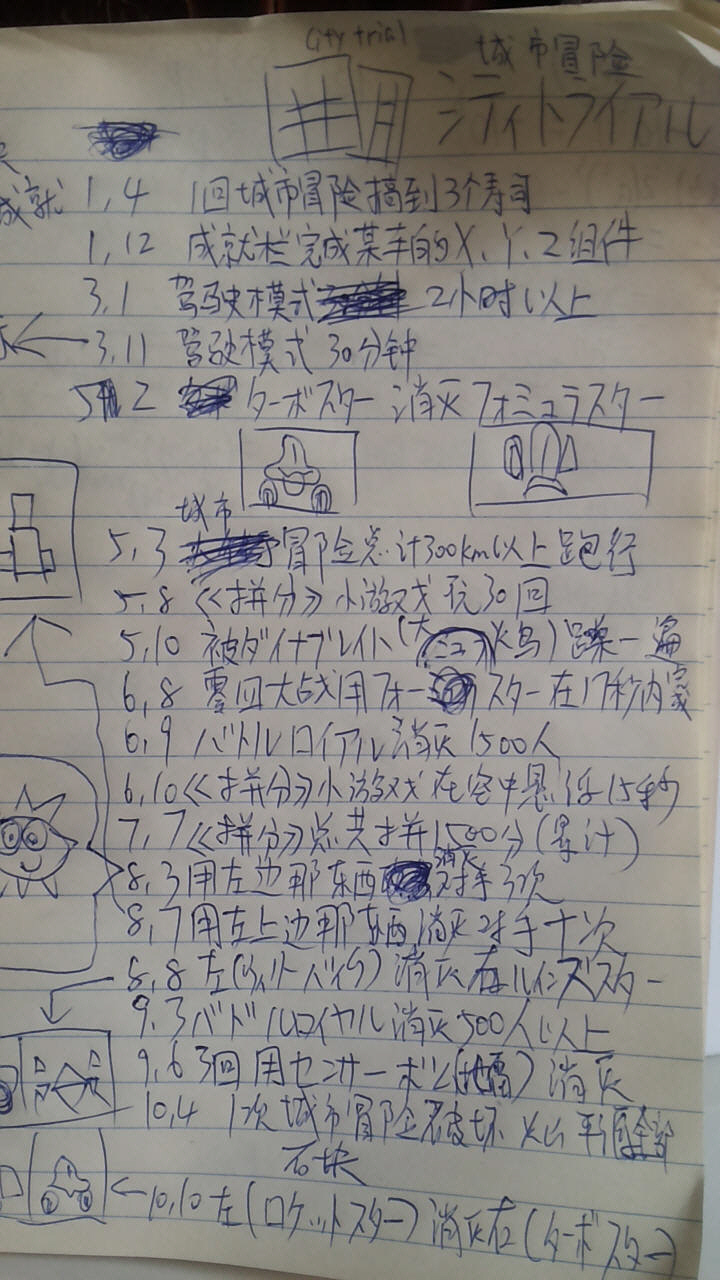 City trial 城市冒险
シティトライアル
成就 1,4 1回城市冒险搞到3个寿司
1,12 成就栏完成某车的X、Y、Z组件
3,1 驾驶模式 2小时以上
3,11 驾驶模式 30分钟
5 2 ターボスター 消灭フォミュラスター
城市
5,3 冒险总计300km以上跑行
5,8 《拼分》小游戏玩30回
5,10 被ダイナブレイド(大 火鸟)踩一遍
6,8 零四大战用フォー スター在17秒内
6,9 バトルロイアル消灭1500人
6,10《拼分》小游戏在空中悬浮15秒
7,7《拼分》总共拼1500分(累计)
8,3用左边那东西 消灭 对手3次
8,7用左上边那东西消灭对手十次
8,8 左(ウィリーバイク)消灭右ルインズスター
9,3バドルロイヤル消灭500人以上
9,6 3回用センサーボム(地雷)消灭
10,4 1次城市冒险破坏火山 全部
石块
10,10左(ロケットスター)消灭右(ターボスター)